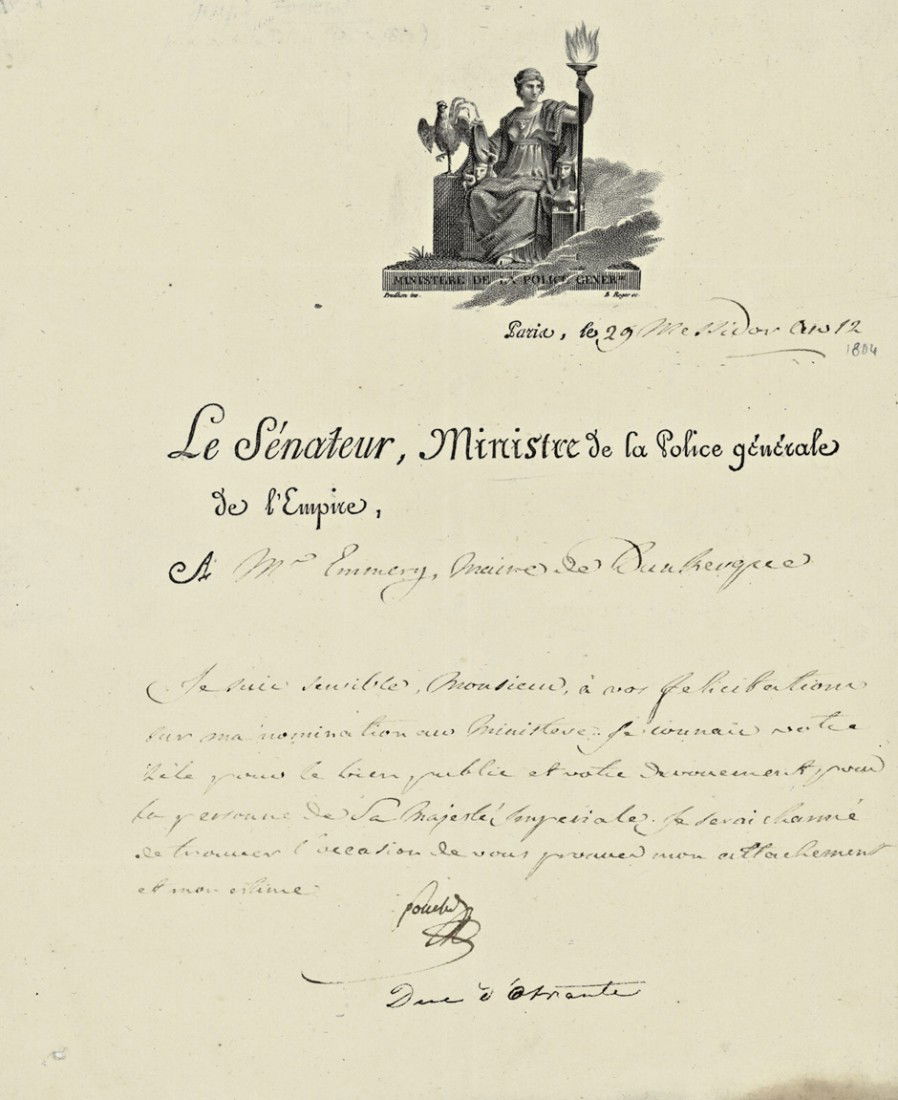 MINISTERE DE LA POLICE GENER.le
Prudhon inv.
B. Roger sc.
Paris, le 29 Messidor an 12
1804
Le Sénateur, Ministre de la Police générale
de l'Empire,
A Mr Emmery, Maire de Dunkerque
Je suis sensible, Monsieur, à vos felicitations
sur ma nomination au Ministere. Je connais votre
Zèle pour le bien public et votre devouement pour
la personne de Sa Majesté Impériale. Je serai charmé
de trouver l'occasion de vous prouver mon attachement
et mon estime
fouché
Duc d'Otrante